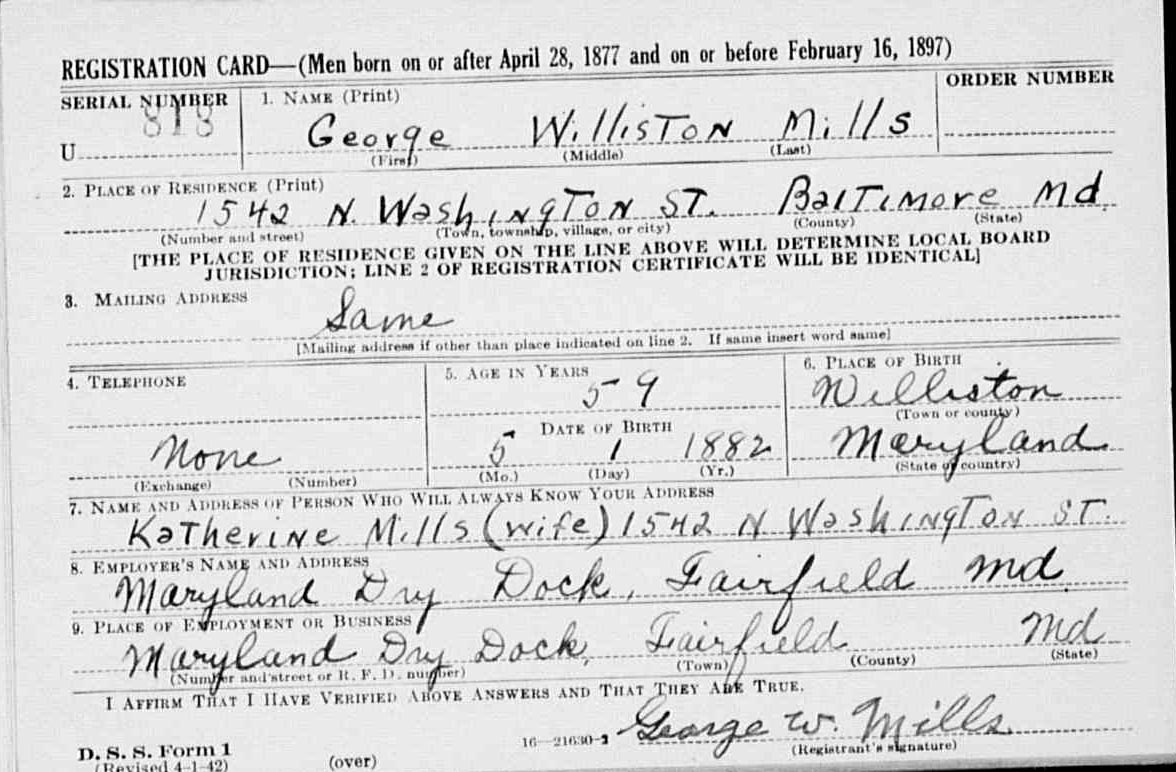 REGISTRATION CARD—(Men born on or after April 28, 1877 and on or before February 16, 1897)
SERIAL NUMBER 1. NAME (Print) ORDER NUMBER
818
U George Williston Mills
(First) (Middle) (Last)
2. PLACE OF RESIDENCE (Print)
1542 N. Washington St. Baltimore Md.
(Number and street) (Town, township, village, or city) (County) (State)
[THE PLACE OF RESIDENCE GIVEN ON THE LINE ABOVE WILL DETERMINE LOCAL BOARD
JURISDICTION; LINE 2 OF REGISTRATION CERTIFICATE WILL BE IDENTICAL]
3. MAILING ADDRESS
Same
[Mailing address if other than place indicated on line 2. If same insert word same]
4. TELEPHONE 5. AGE IN YEARS 6. PLACE OF BIRTH
59 Williston
(Town or county)
DATE OF BIRTH
None 5 1 1882 Maryland
(Exchange) (Number) (Mo.) (Day) (Yr.) (State or country)
7. NAME AND ADDRESS OF PERSON WHO WILL ALWAYS KNOW YOUR ADDRESS
Katherine Mills (wife) 1542 N Washington St.
8. EMPLOYER'S NAME AND ADDRESS
Maryland Dry Dock, Fairfield Md.
9. PLACE OF EMPLOYMENT OR BUSINESS
Maryland Dry Dock, Fairfield Md
(Number and street or R. F. D. number) (Town) (County) (State)
I AFFIRM THAT I HAVE VERIFIED ABOVE ANSWERS AND THAT THEY ARE TRUE.
George W. Mills
D. S. S. Form 1 16—21630-2 (Registrant's signature)
(Revised 4-1-42) (over)